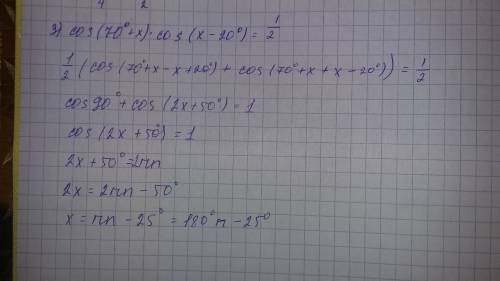 4 2
3) cos(70°+x)·cos(x-20°)=1/2
1/2(cos(70°+x-x+20°)+cos(70°+x+x-20°))=1/2
cos90°+cos(2x+50°)=1
cos(2x+50°)=1
2x+50°=2πn
2x=2πn-50°
x=πn-25°=180°n-25°